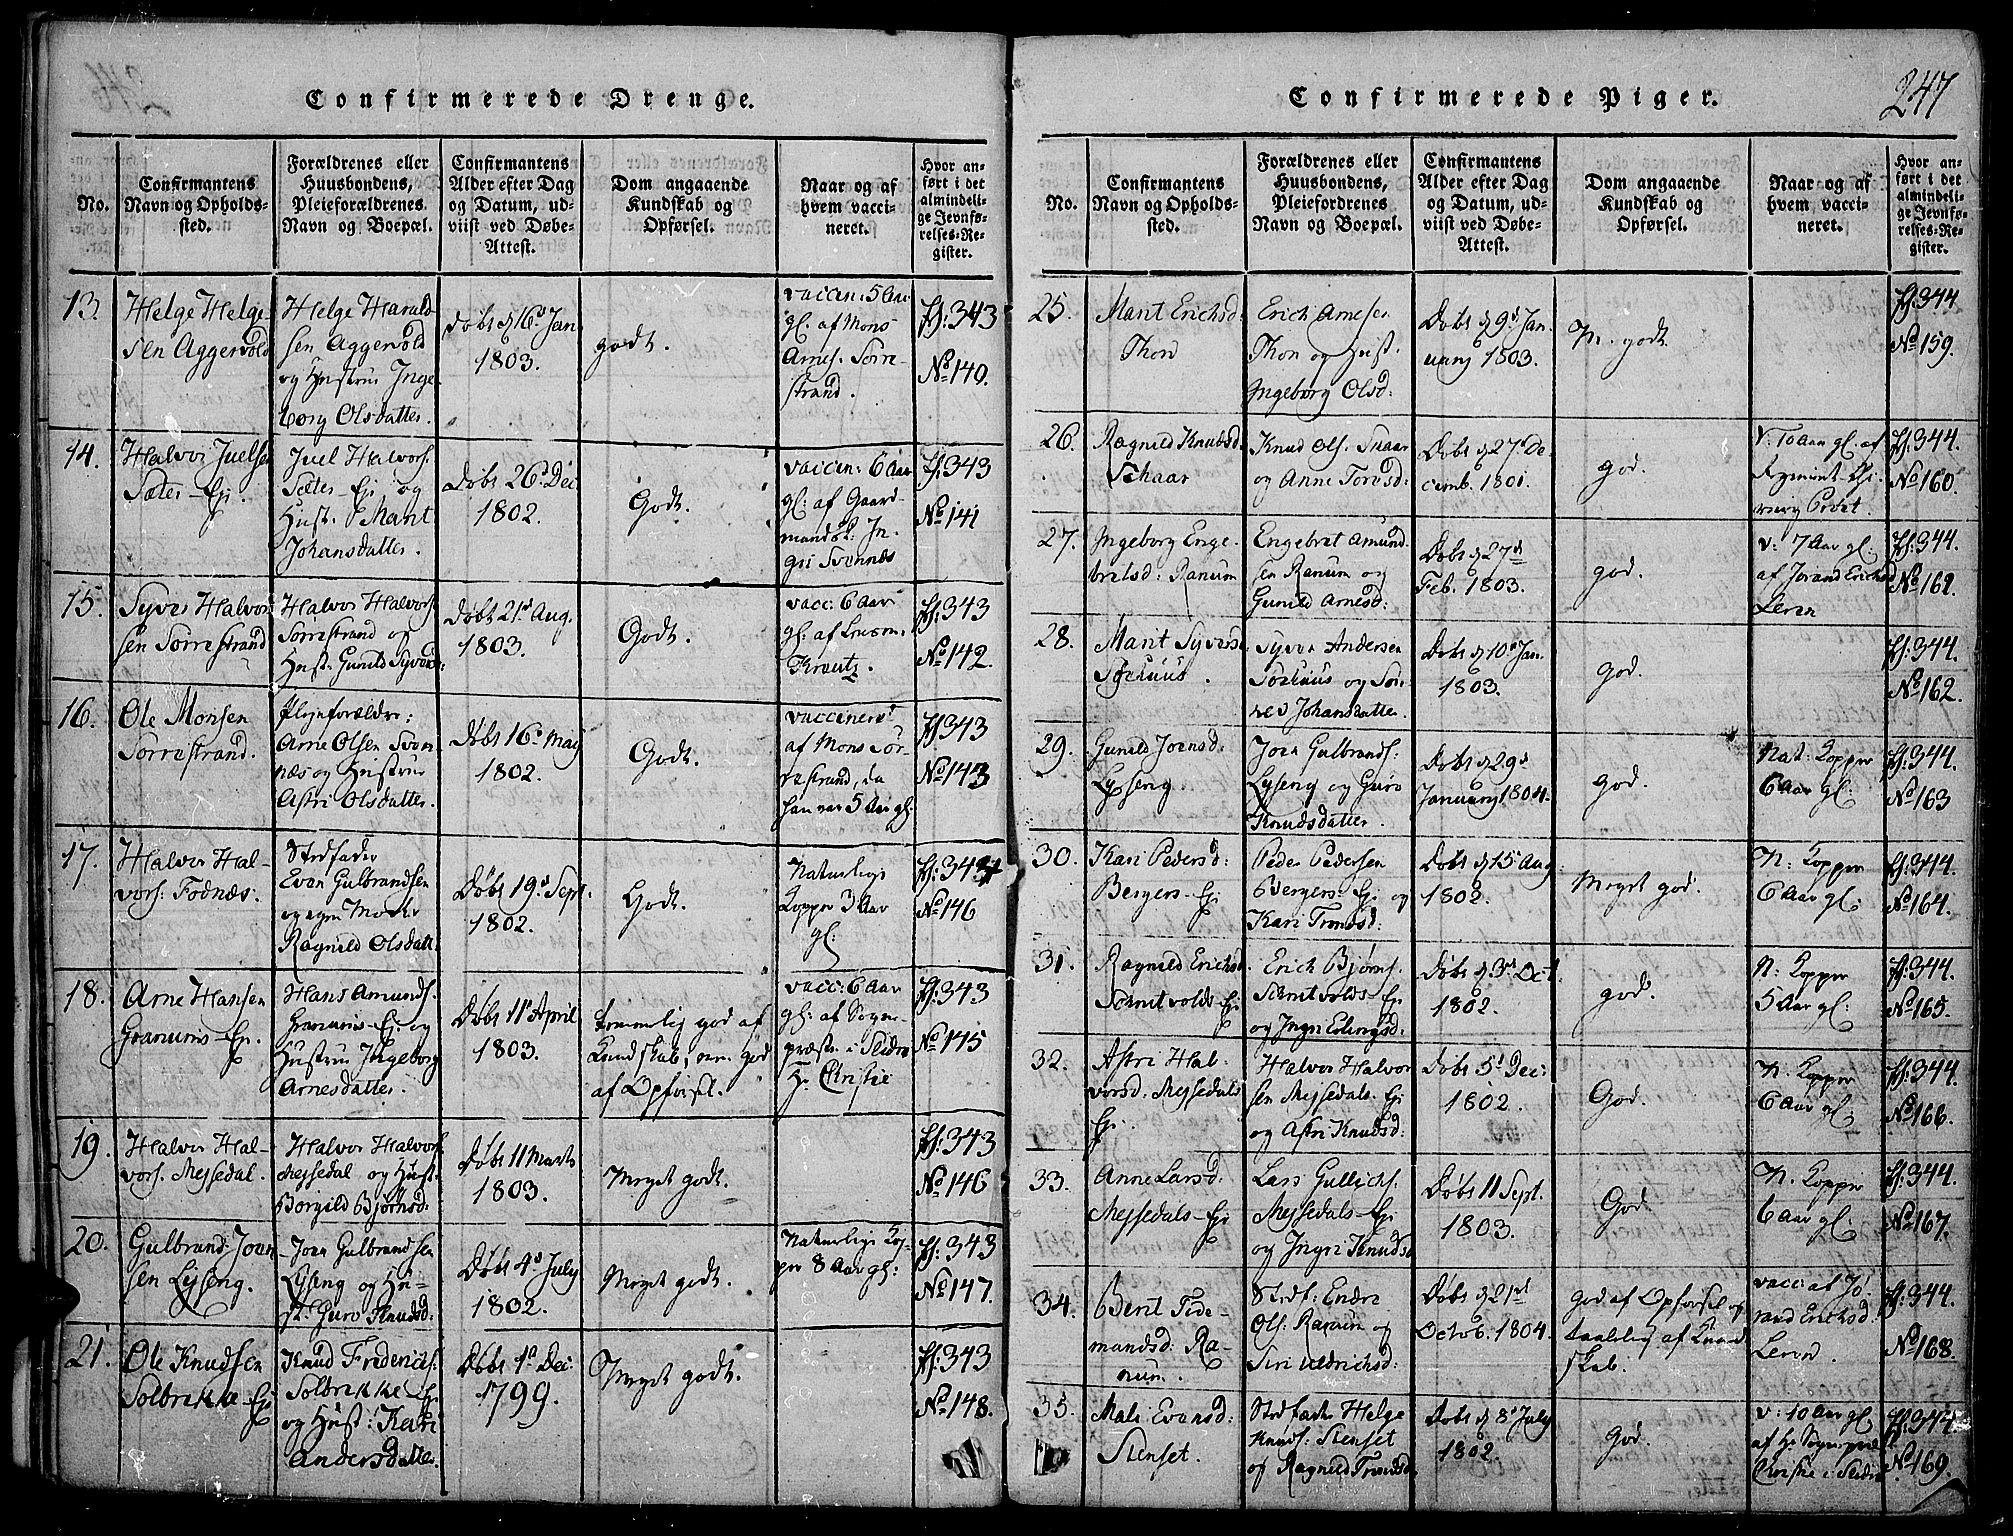 Confirmerede Drenge.
No.
Confirmantens
Navn og Opholds-
sted.
Forældrenes eller
Huusbondens,
Pleieforældrenes
Navn og Boepæl.
Confirmantens
Alder efter Dag
og Datum, ud-
viist ved Døbe-
Attest.
Dom angaaende
Kundskab og
Opførsel.
Naar og af
hvem vacci-
neret.
Hvor an-
ført i det
almindeli-
ge Jevnfø-
relses-Re-
gister.
13.
Helge Helge-
sen Aggervold
Helge Harald-
sen Aggervold
og Hustrue Inge
borg Olsdatter.
Døbt d 16d Jan
1803.
godt.
vaccin: 5 Aar
gl. af Mons
Arnes. Sørre-
strand.
fl: 343
No 140.
14.
Halvor Juelsen
Sæter-Ej.
Juel Halvors.
Sæter-Ej og
Hust. Marit
Johansdatter.
Døbt 26d Dec
1802.
Godt.
vaccin: 6 Aar
gl: af Gaard-
mand
gri Svennæs
fl: 343
No 141
15.
Syver Halvor
sen Sørrestrand
Halvor Halvors.
Sørrestrand og
Hust. Gunild Syversd:
Døbt 21d Aug.
1803.
Godt.
vacc: 6 Aar
gl: af
Kreutz.
fl: 343
No 142.
16.
Ole Monsen
Sørrestrand.
Plejeforældre:
Arne Olsen Sven-
næs og Hustrue
Astri Olsdatter.
Døbt 16d May
1802.
Godt.
vaccineret
af Mons Sør-
restrand, da
han var 5 Aar gl:
fl: 343
No 143
17.
Halvor Hal-
vors. Fodnæs.
Stedfader
Even Gulbrandsen
og egen Moder
Ragnild Olsdatt.
Døbt 19d Sept.
1802.
Godt.
Naturlige
Kopper 3 Aar
gl.
fl: 343
No 146
18.
Arne Hansen
Granums-Ej.
Hans Amunds.
Granums-Ej og
Hustrue Ingeborg
Arnesdatter.
Døbt 11d April
1803.
temmelig god af
Kundskab, men god
af Opførsel.
vacc: 6 Aar
gl: af Sogne-
præsten i Slidre
Hr. Christie
fl: 343
No 145
19.
Halvor Hal-
vors. Mejsedal.
Halvor Halvors.
Mejsedal og Hust.
Borgild Bjørnsd:
Døbt 11 Marts
1803.
Meget godt.
fl: 343
No 146
20.
Gulbrand Joen
sen Lyseng.
Joen Gulbrandsen
Lyseng og Hu-
st. Guro Knudsd:
Døbt 4d July
1802.
Meget godt.
Naturlige Kop-
per 8 Aar gl:
fl: 343
No 147.
21.
Ole Knudsen
Solbrekke Ej
Knud Fredrichs.
Solbrekke Ej
og Hust: Kari
Andersdatter.
Døbt 1d Dec:
1799.
Meget godt.
fl: 343
No 148.
Confirmerede Piger.
247
No.
Confirmantens
Navn og Opholds-
sted.
Forældrenes eller
Huusbondens,
Pleiefordrenes
Navn og Boepæl.
Confirmantens
Alder efter Dag
og Datum, ud-
viist ved Døbe-
Attest.
Dom angaaende
Kundskab og
Opførsel.
Naar og af
hvem vacci-
neret.
Hvor an-
ført i det
almindeli-
ge Jevnfø-
relses-Re-
gister.
25.
Marit Erichsd
Thon
Erich Arnesen
Thon og Hust.
Ingeborg Olsd:
Døbt d 9d Jan
uary 1803.
M. godt
fl: 344
No 159.
26.
Ragnild Knudsd.
Schaar
Knud Ols. Skaar
og Anne Toresd:
Døbt d 27d De
cemb. 1801.
god.
V: 10 Aar gl. af
fl: 344.
No 160.
27.
Ingeborg Enge-
bretsd: Ranum
Engebret Amund
sen Ranum og
Gunild Arnesd:
Døbt d 27d
Feb. 1803.
god.
v: 7 Aar gl.
af Jorand Erichsd
Leren
fl: 344.
No 161.
28.
Marit Syversd
Sørhuus.
Syver Andersen
Sørhuus og Sør-
red Johansdatter.
Døbt d 10d Jan.
1803.
god.
fl: 344.
No 162.
29.
Gunild Joensd.
Lyseng.
Joen Gulbrands.
Lyseng og Guro
Knudsdatter.
Døbt d 29d
January 1804.
god.
Nat: Kopper
6 Aar gl.
fl: 344.
No 163
30.
Kari Pedersd:
Bergers-Ej
Peder Pedersen
Bergers-Ej og
Kari Trondsd:
Døbt d 15 Aug
1802.
Meget god.
N: Kopper
6 Aar gl.
fl: 344.
No 164.
31.
Ragnild Erichsd.
Schretvolds-Ej
Erich Bjørns.
Schretvolds-Ej
og Ingri Erlingsd:
Døbt d 3d Oct
1802.
god.
N: Kopper
5 Aar gl:
fl: 344.
No 165.
32.
Astri Hal-
vorsd. Mejsedals
Ej.
Halvor Halvor
sen Mejsedals-Ej
og Astri Knudsd:
Døbt 5d Dec:
1802.
God.
N. Kopper
6 Aar gl.
fl: 344.
No 166.
33.
Anne Larsd.
Mejsedals-Ej
Lars Gullichs.
Mejsedals-Ej
og Ingri Knudsd
Døbt 11 Sept.
1803.
God.
N. Kopper
6 Aar gl.
fl: 344.
No 167.
34.
Berit Tide-
mandsd: Ra-
num.
Stedf: Endre
Ols. Ranum og
Siri Uldrichsd:
Døbt d 21d
Octob. 1804.
god af Opførsel og
taalelig af Kund
skab.
vacc: af Jo-
rand Erichsd.
Leren.
fl: 344.
No 168.
35.
Mali Evensd:
Stenset.
Stedfader Helge
Knuds. Stenset
og Ragnild Trondsd.
Døbt d 8d July
1802.
God.
v: 10 Aar gl.
af Hr Sognepræst
Christie i Slidre
fl: 344.
No 169.